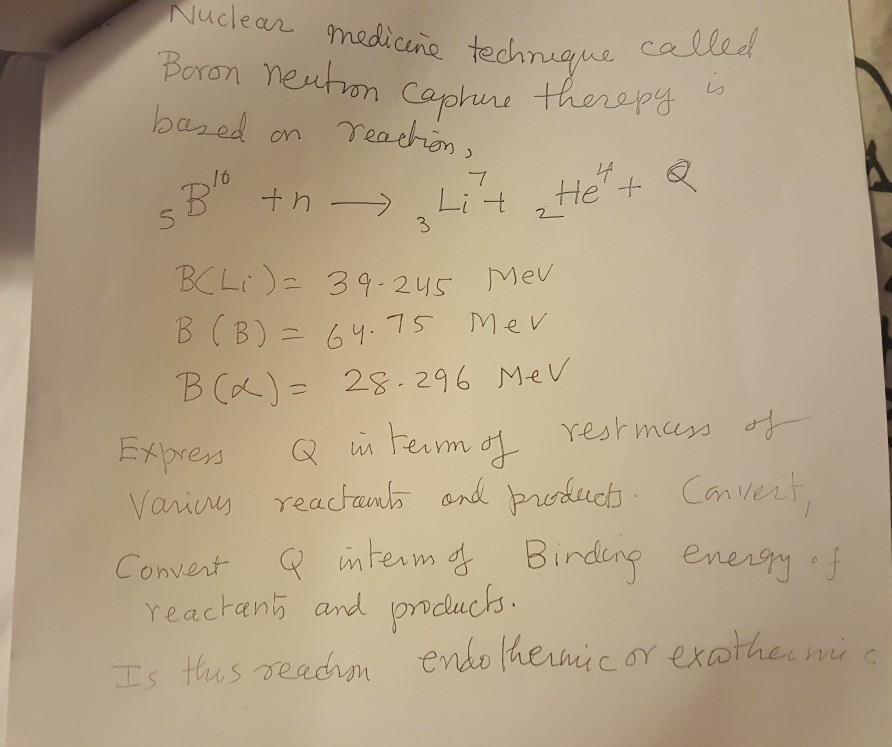 Nuclear medicine technique called
Boron neutron capture therepy is
based on reaction,
₅B¹⁰ + n ⟶ ₃Li⁷ + ₂He⁴ + Q
B(Li) = 39.245 MeV
B(B) = 64.75 MeV
B(α) = 28.296 MeV
Express Q in term of restmass of
Various reactants and products. Convert,
Convert Q interm of Binding energy of
reactants and products.
Is this reaction endothermic or exothermic